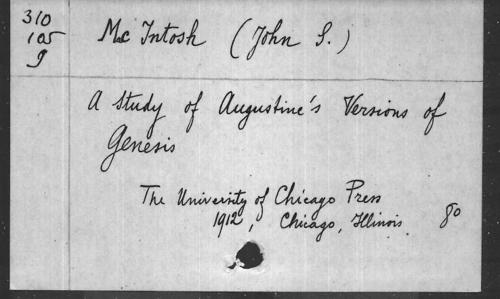 310
105
g
Mc Intosh (John S.)
A Study of Augustine's Versions of
Genesis
The University of Chicago Press
1912, Chicago, Illinois. 80